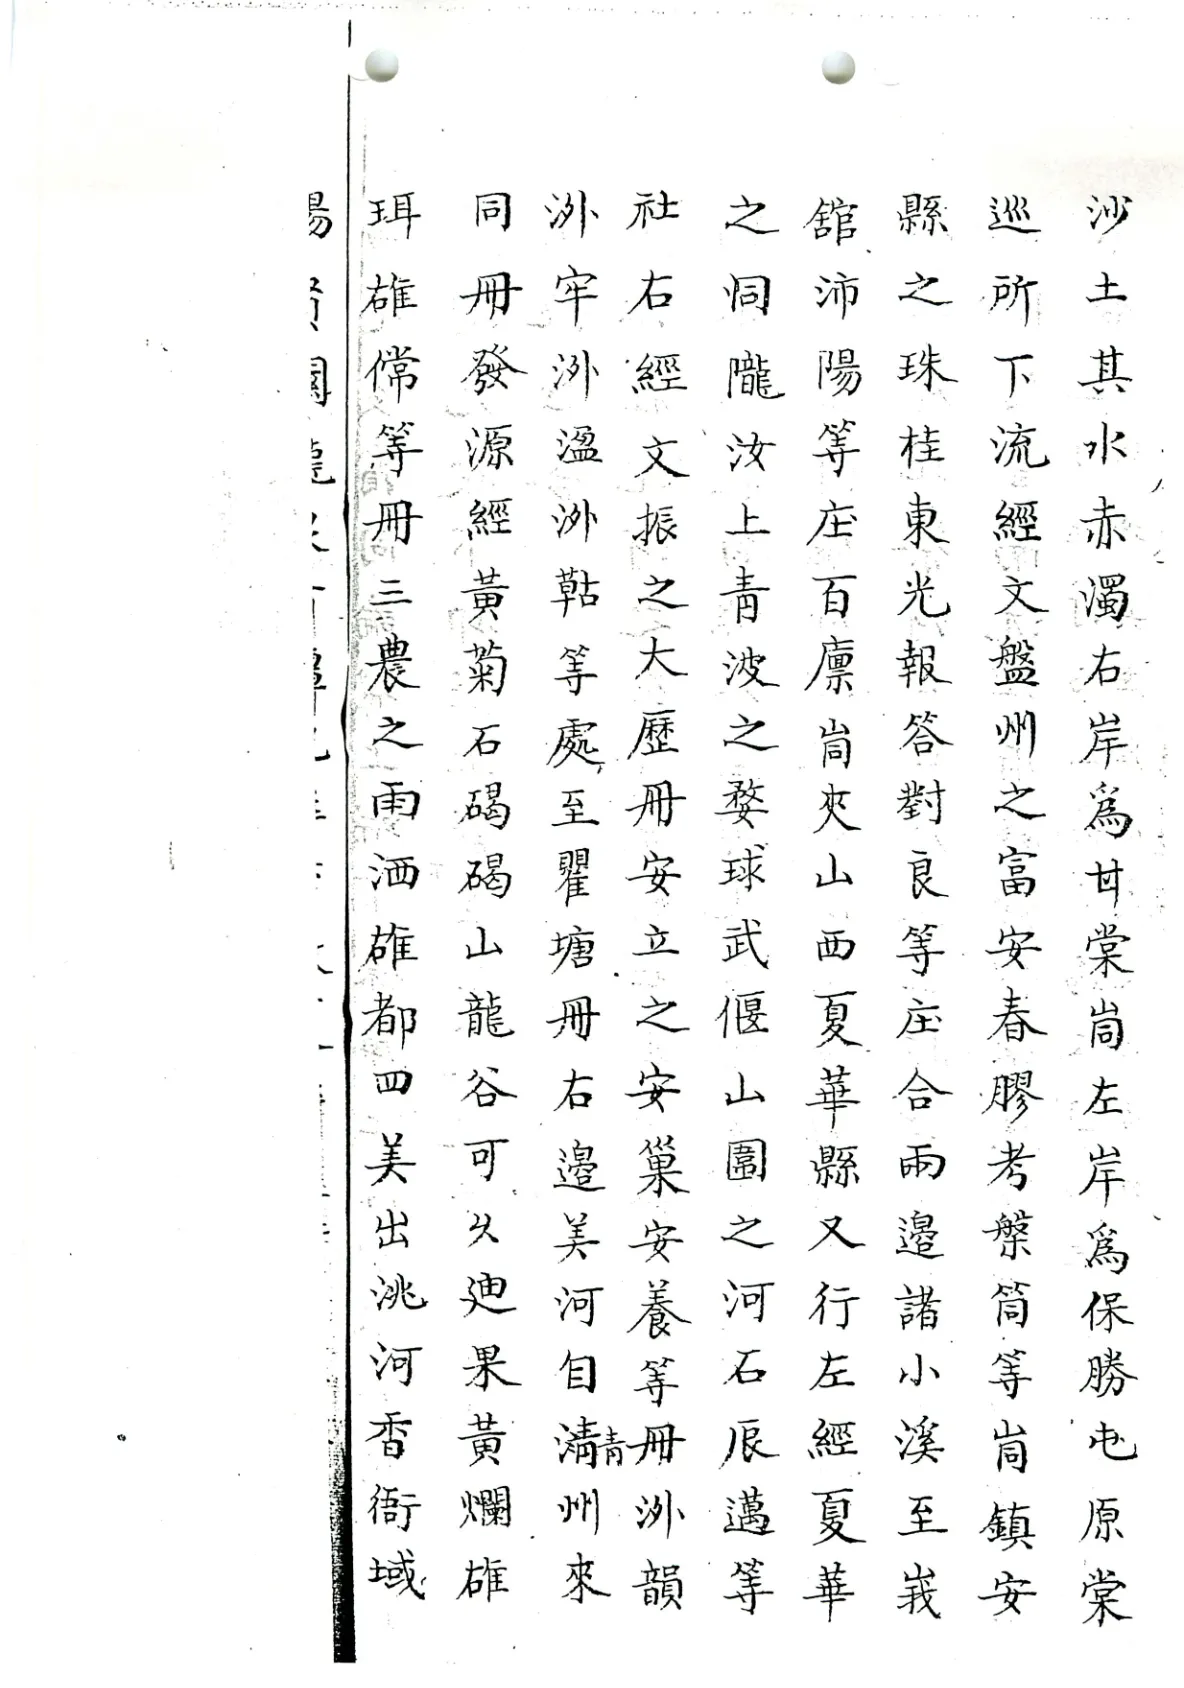 沙土其水赤濁右岸爲甘棠峝左岸爲保勝屯原棠
巡所下流經文盤州之富安春膠考槃筒等峝鎮安
縣之珠桂東光報答對良等庄合兩邉諸小溪至峩
舘沛陽等庄百廪峝夾山西夏華縣又行左經夏華
之洞隴汝上青波之婺球武偃山圍之河石㕋邁等
社右經文振之大歷册安立之安巢安養等册泖韻
泖牢泖溫泖䩞等處至瞿塘册右邉美河自清青州來
同册發源經黃菊石碣碣山龍谷可久廸果黃爛雄
珥雄常等册三農之雨洒雄都四美出洮河香衙域